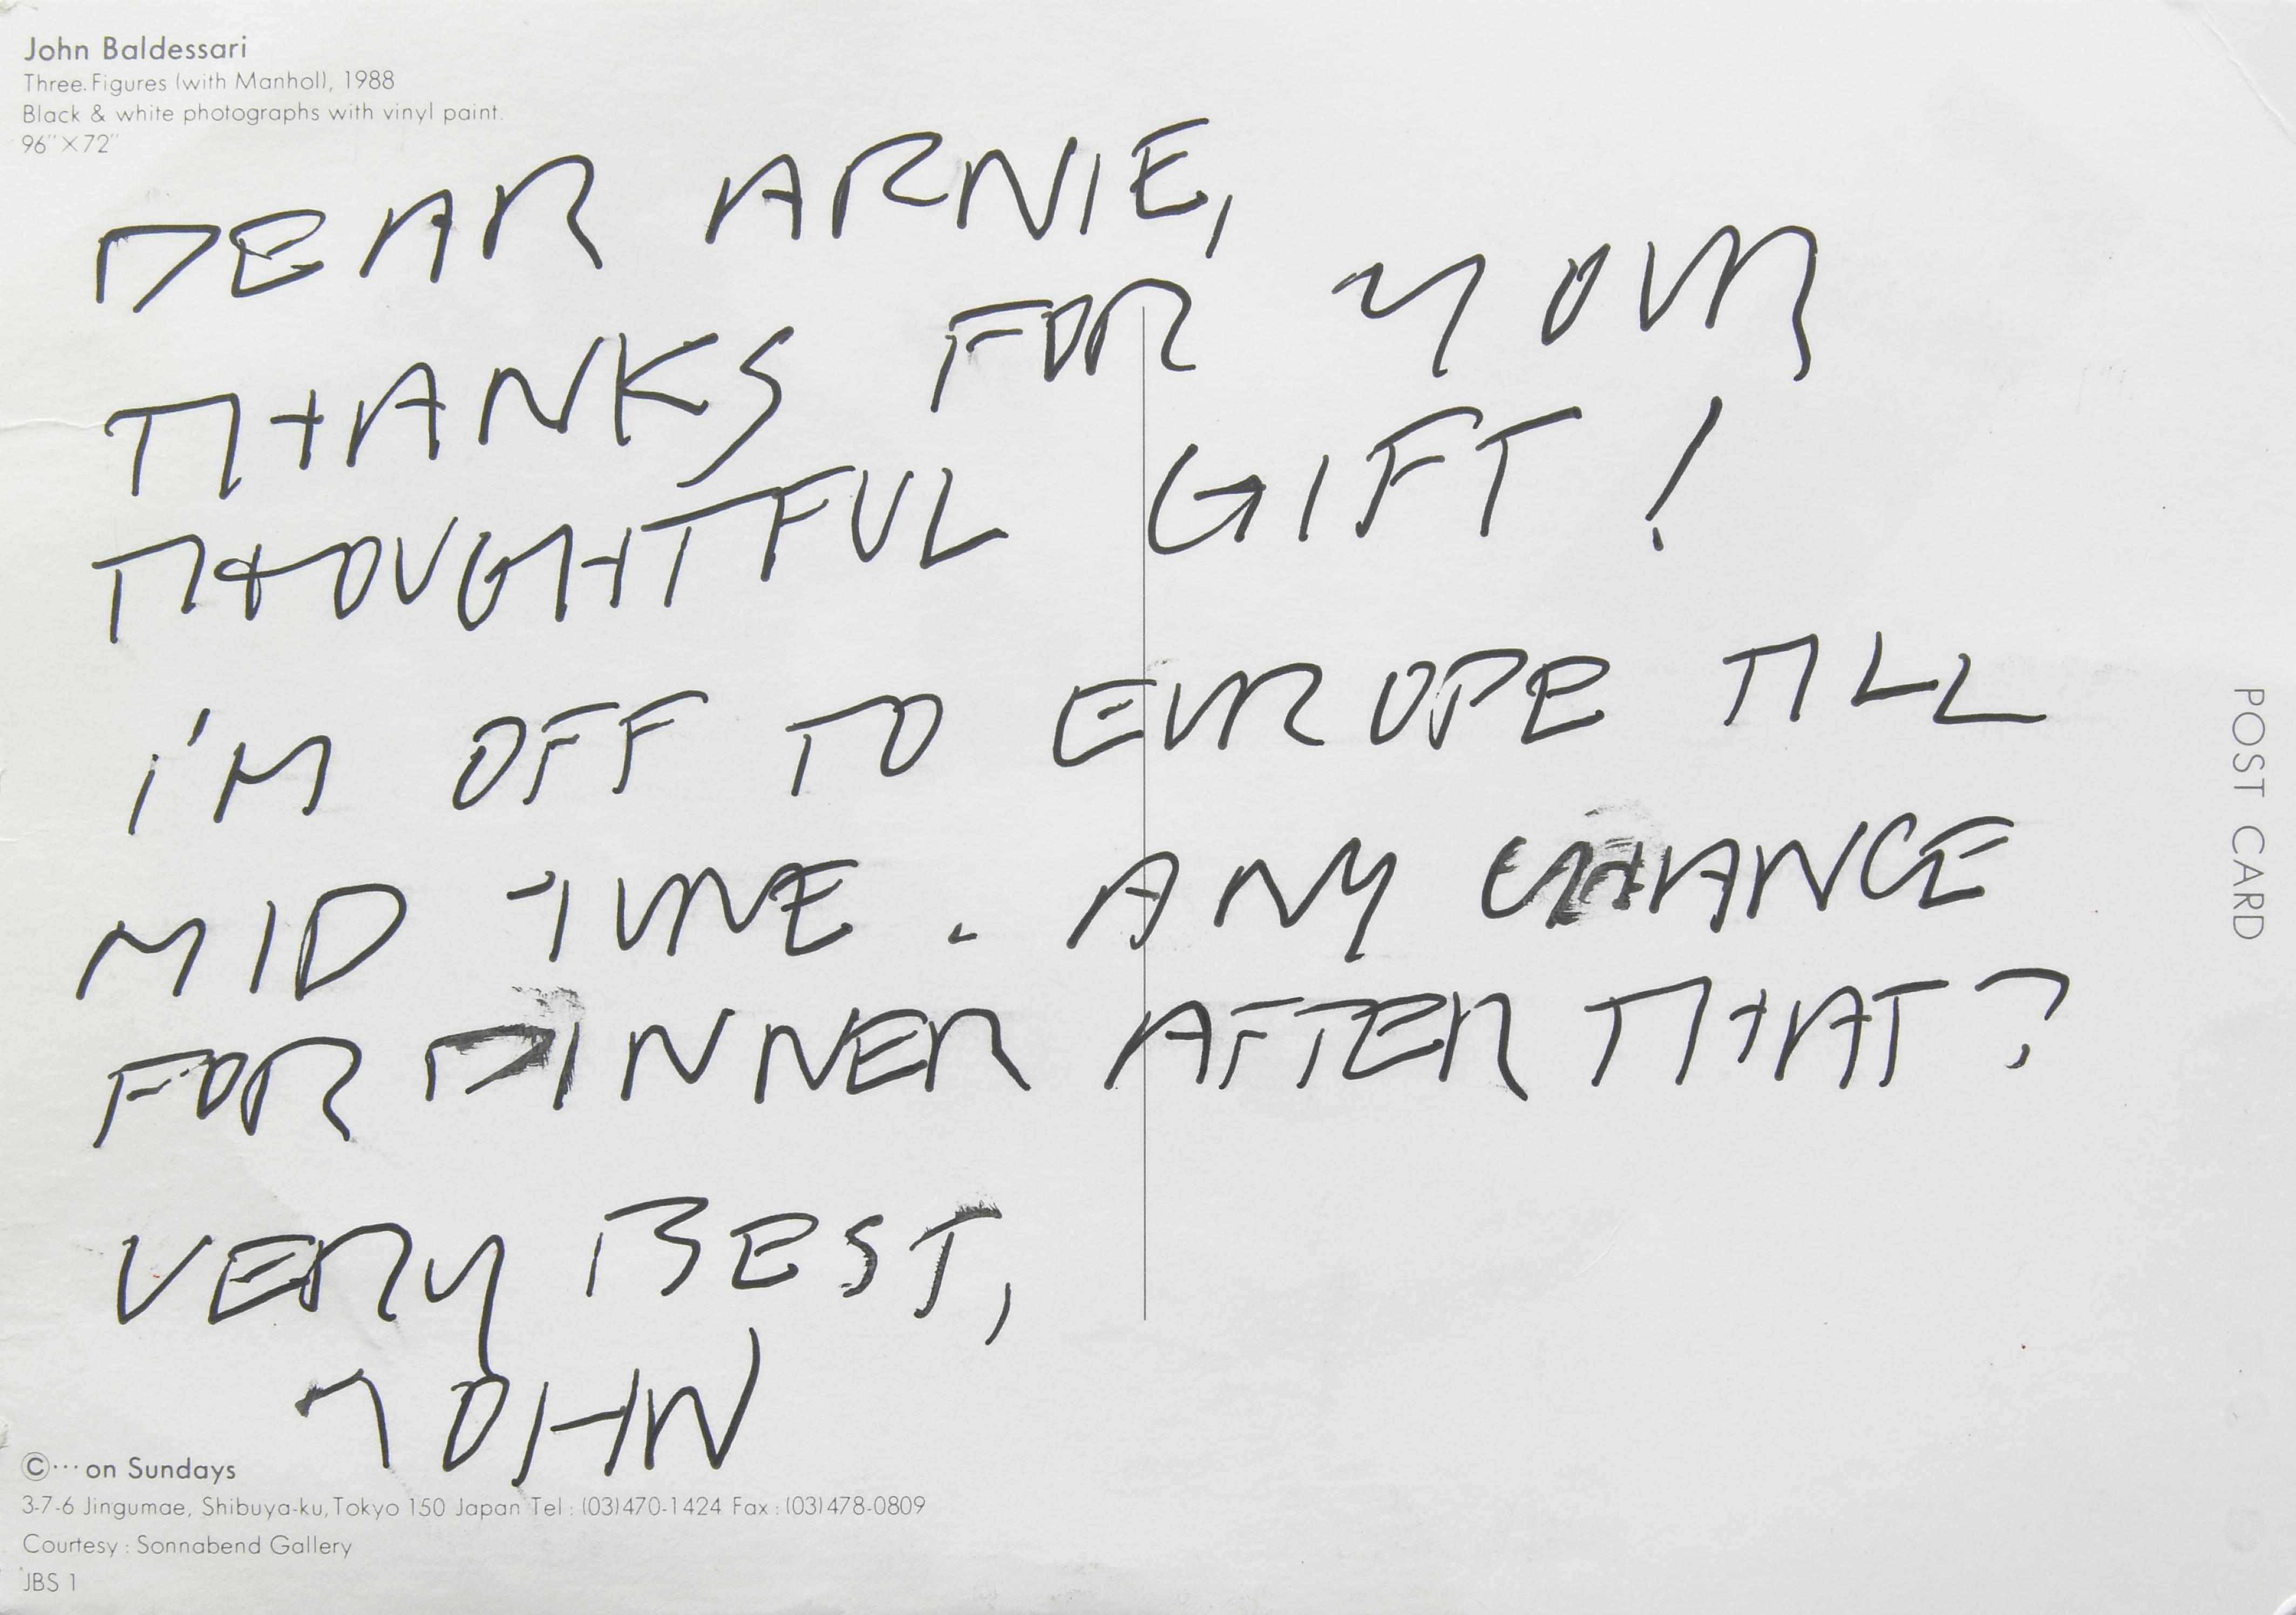 John Baldessari
Three.Figures (with Manhol), 1988
Black & white photographs with vinyl paint.
96"×72"
DEAR ARNIE,
THANKS FOR YOUR
THOUGHTFUL GIFT!
I'M OFF TO EUROPE TILL
MID JUNE. ANY CHANCE
FOR DINNER AFTER THAT?
VERY BEST,
JOHN
POST CARD
©···on Sundays
3-7-6 Jingumae, Shibuya-ku, Tokyo 150 Japan Tel : (03)470-1424 Fax : (03)478-0809
Courtesy : Sonnabend Gallery
JBS 1